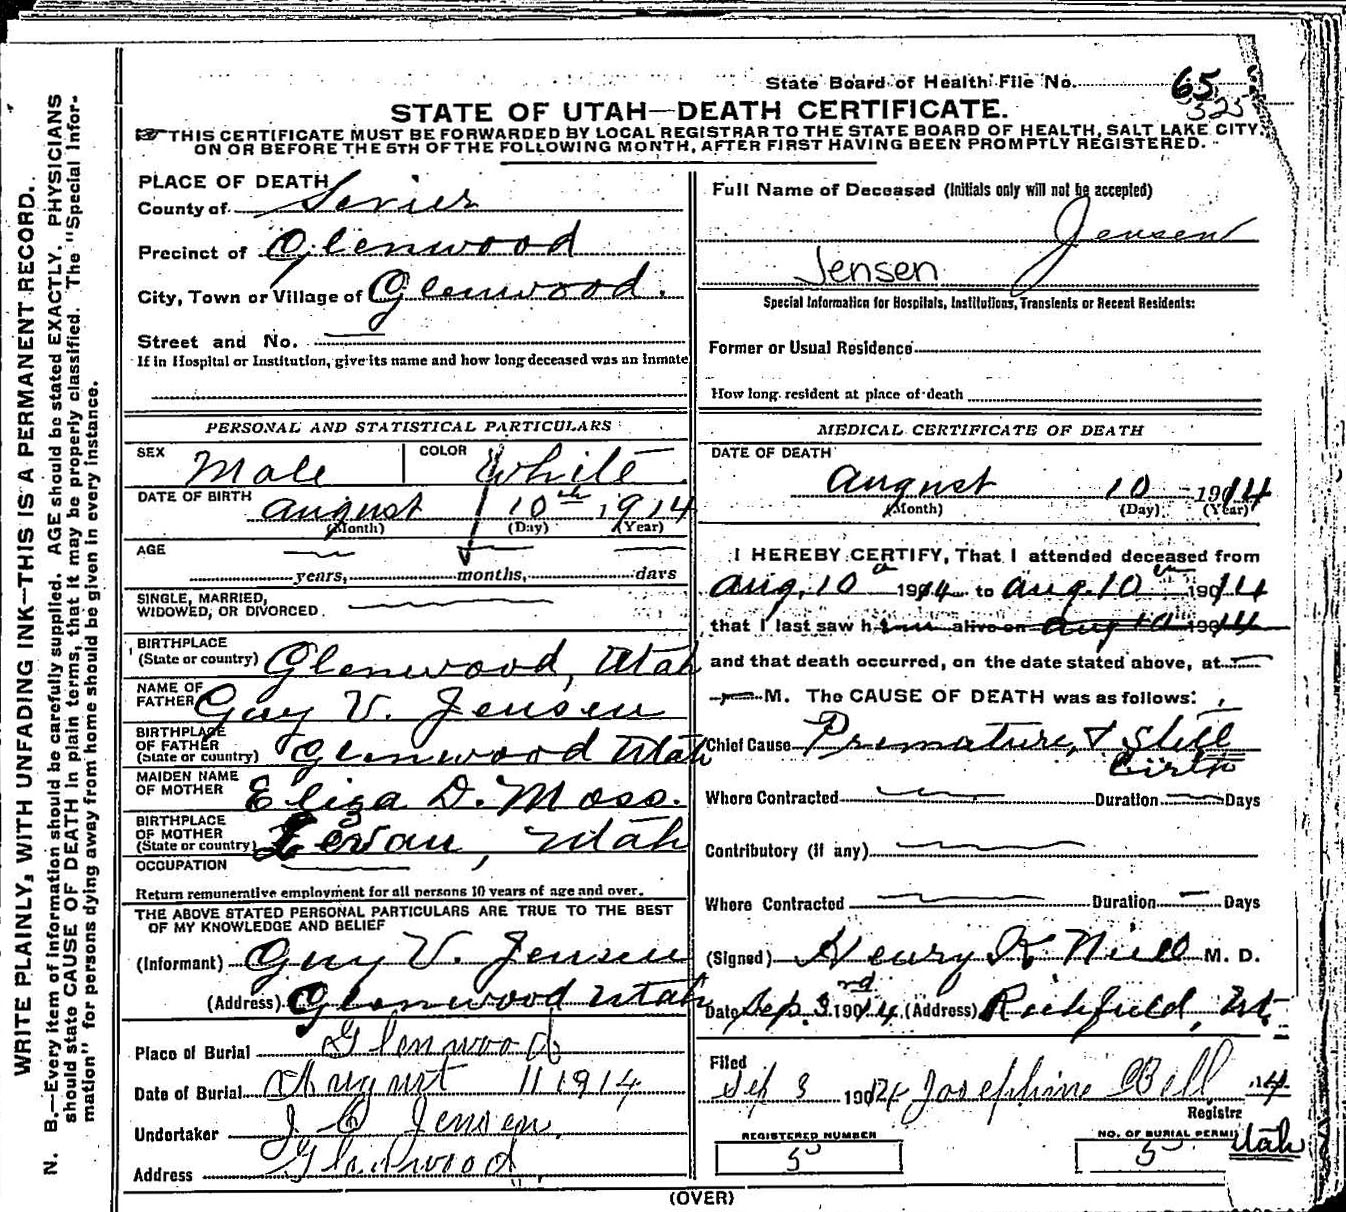 State Board of Health File No. 65
325
STATE OF UTAH—DEATH CERTIFICATE.
THIS CERTIFICATE MUST BE FORWARDED BY LOCAL REGISTRAR TO THE STATE BOARD OF HEALTH, SALT LAKE CITY,
ON OR BEFORE THE 5TH OF THE FOLLOWING MONTH, AFTER FIRST HAVING BEEN PROMPTLY REGISTERED.
WRITE PLAINLY, WITH UNFADING INK—THIS IS A PERMANENT RECORD.
N. B.—Every item of information should be carefully supplied. AGE should be stated EXACTLY. PHYSICIANS
should state CAUSE OF DEATH in plain terms, that it may be properly classified. The "Special Infor-
mation" for persons dying away from home should be given in every instance.
PLACE OF DEATH
County of Sevier
Precinct of Glenwood
City, Town or Village of Glenwood.
Street and No.
If in Hospital or Institution, give its name and how long deceased was an Inmate
PERSONAL AND STATISTICAL PARTICULARS
SEX Male COLOR White
DATE OF BIRTH
August 10th 1914
(Month) (Day) (Year)
AGE
years, months, days
SINGLE, MARRIED,
WIDOWED, OR DIVORCED
BIRTHPLACE
(State or country) Glenwood, Utah
NAME OF
FATHER Guy V. Jensen
BIRTHPLACE
OF FATHER
(State or country) Glenwood Utah
MAIDEN NAME
OF MOTHER Eliza D. Moss.
BIRTHPLACE
OF MOTHER
(State or country) Levan, Utah
OCCUPATION
Return remunerative employment for all persons 10 years of age and over.
THE ABOVE STATED PERSONAL PARTICULARS ARE TRUE TO THE BEST
OF MY KNOWLEDGE AND BELIEF
(Informant) Guy V. Jensen
(Address) Glenwood Utah
Place of Burial Glenwood
Date of Burial August 11 1914
Undertaker J. C Jensen,
Address Glenwood
Full Name of Deceased (Initials only will not be accepted)
Jensen
Jensen
Special Information for Hospitals, Institutions, Transients or Recent Residents:
Former or Usual Residence
How long resident at place of death
MEDICAL CERTIFICATE OF DEATH
DATE OF DEATH
August 10 1914
(Month) (Day) (Year)
I HEREBY CERTIFY, That I attended deceased from
Aug. 10 1914 to Aug. 10 1914
that I last saw him alive on Aug 10 1914
and that death occurred, on the date stated above, at
M. The CAUSE OF DEATH was as follows:
Chief Cause Premature, & Still
birth
Where Contracted Duration Days
Contributory (if any)
Where Contracted Duration Days
(Signed) Henry K Neill M. D.
Date Sep. 3rd 1914 (Address) Richfield, Ut.
Filed
Sep 3 1914 Josephine Bell 14
Registrar
Utah
REGISTERED NUMBER
5
NO. OF BURIAL PERMIT
5
(OVER)